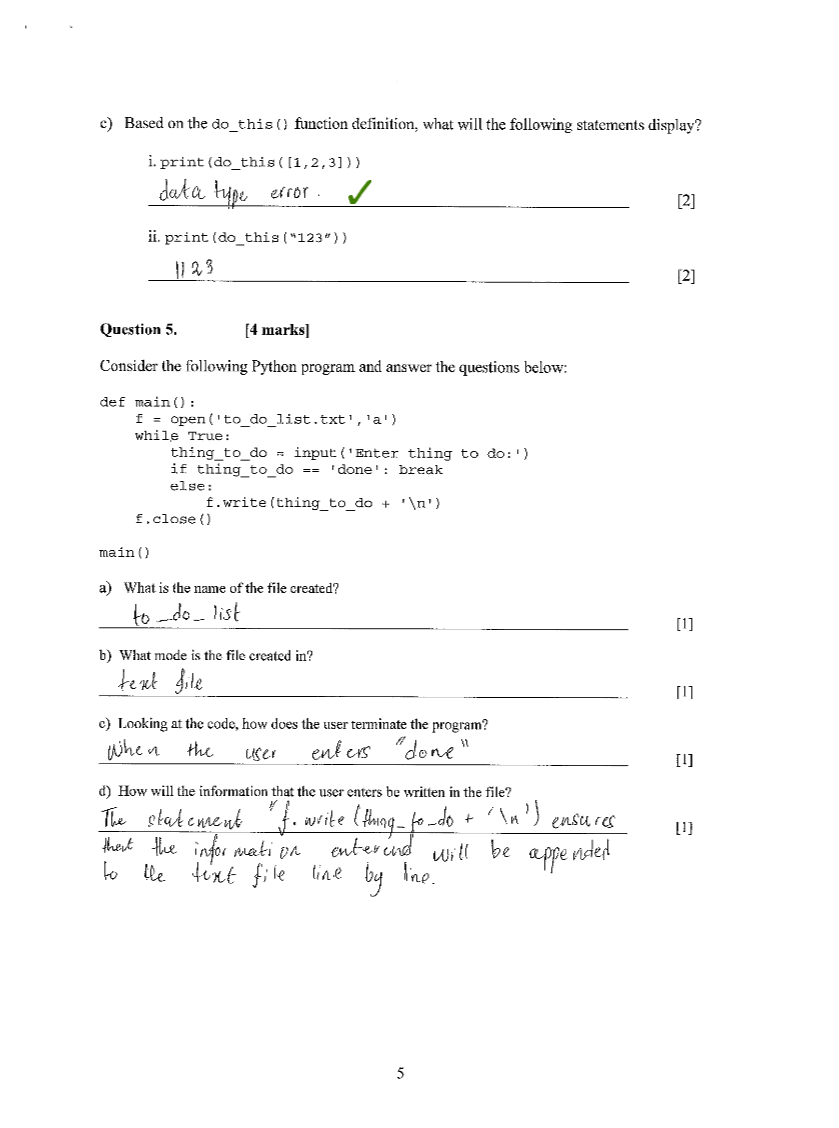 c) Based on the do_this() function definition, what will the following statements display?
i. print(do_this([1,2,3]))
data type error.
[2]
ii. print(do_this("123"))
1123
[2]
Question 5. [4 marks]
Consider the following Python program and answer the questions below:
def main():
    f = open('to_do_list.txt','a')
    while True:
        thing_to_do = input('Enter thing to do:')
        if thing_to_do == 'done': break
        else:
            f.write(thing_to_do + '\n')
    f.close()
main()
a) What is the name of the file created?
to_do_list
[1]
b) What mode is the file created in?
text file
[1]
c) Looking at the code, how does the user terminate the program?
When the user enters "done"
[1]
d) How will the information that the user enters be written in the file?
The statement "f.write(thing_to_do + '\n') ensures
[1]
that the information entered will be appended
to the text file line by line.
5